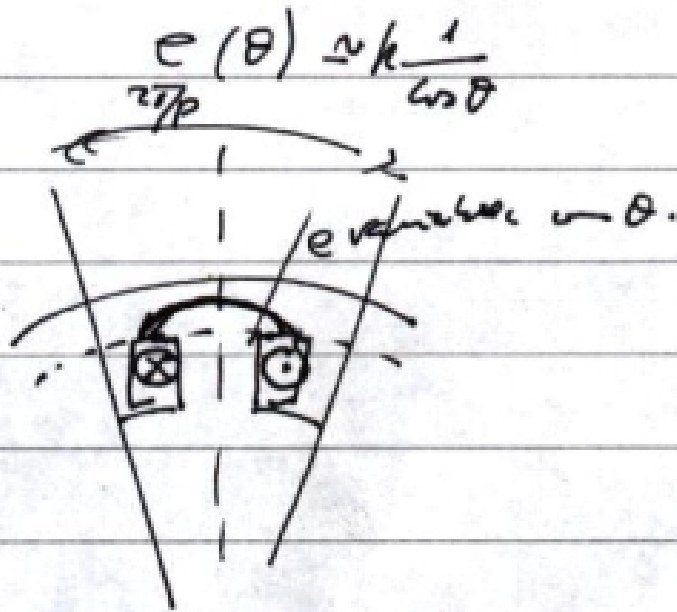 e(θ) ≃ k 1/cos θ
2π/p
e variable en θ.